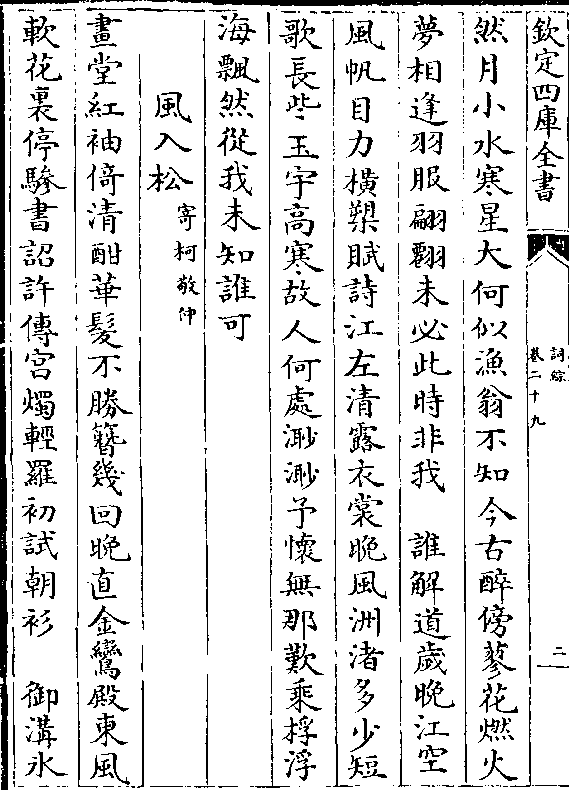 欽定四庫全書
詞綜
卷二十九
二
然月小水寒星大何似漁翁不知今古醉傍蓼花燃火
夢相逢羽服翩翻未必此時非我　誰解道歲晚江空
風帆目力橫槊賦詩江左清露衣裳晚風洲渚多少短
歌長些玉宇高寒故人何處渺渺予懷無那歎乘桴浮
海飄然從我未知誰可
風入松寄柯敬仲
畫堂紅袖倚清酣華髮不勝簪幾回晚直金鑾殿東風
軟花裏停驂書詔許傳宮燭輕羅初試朝衫　御溝氷